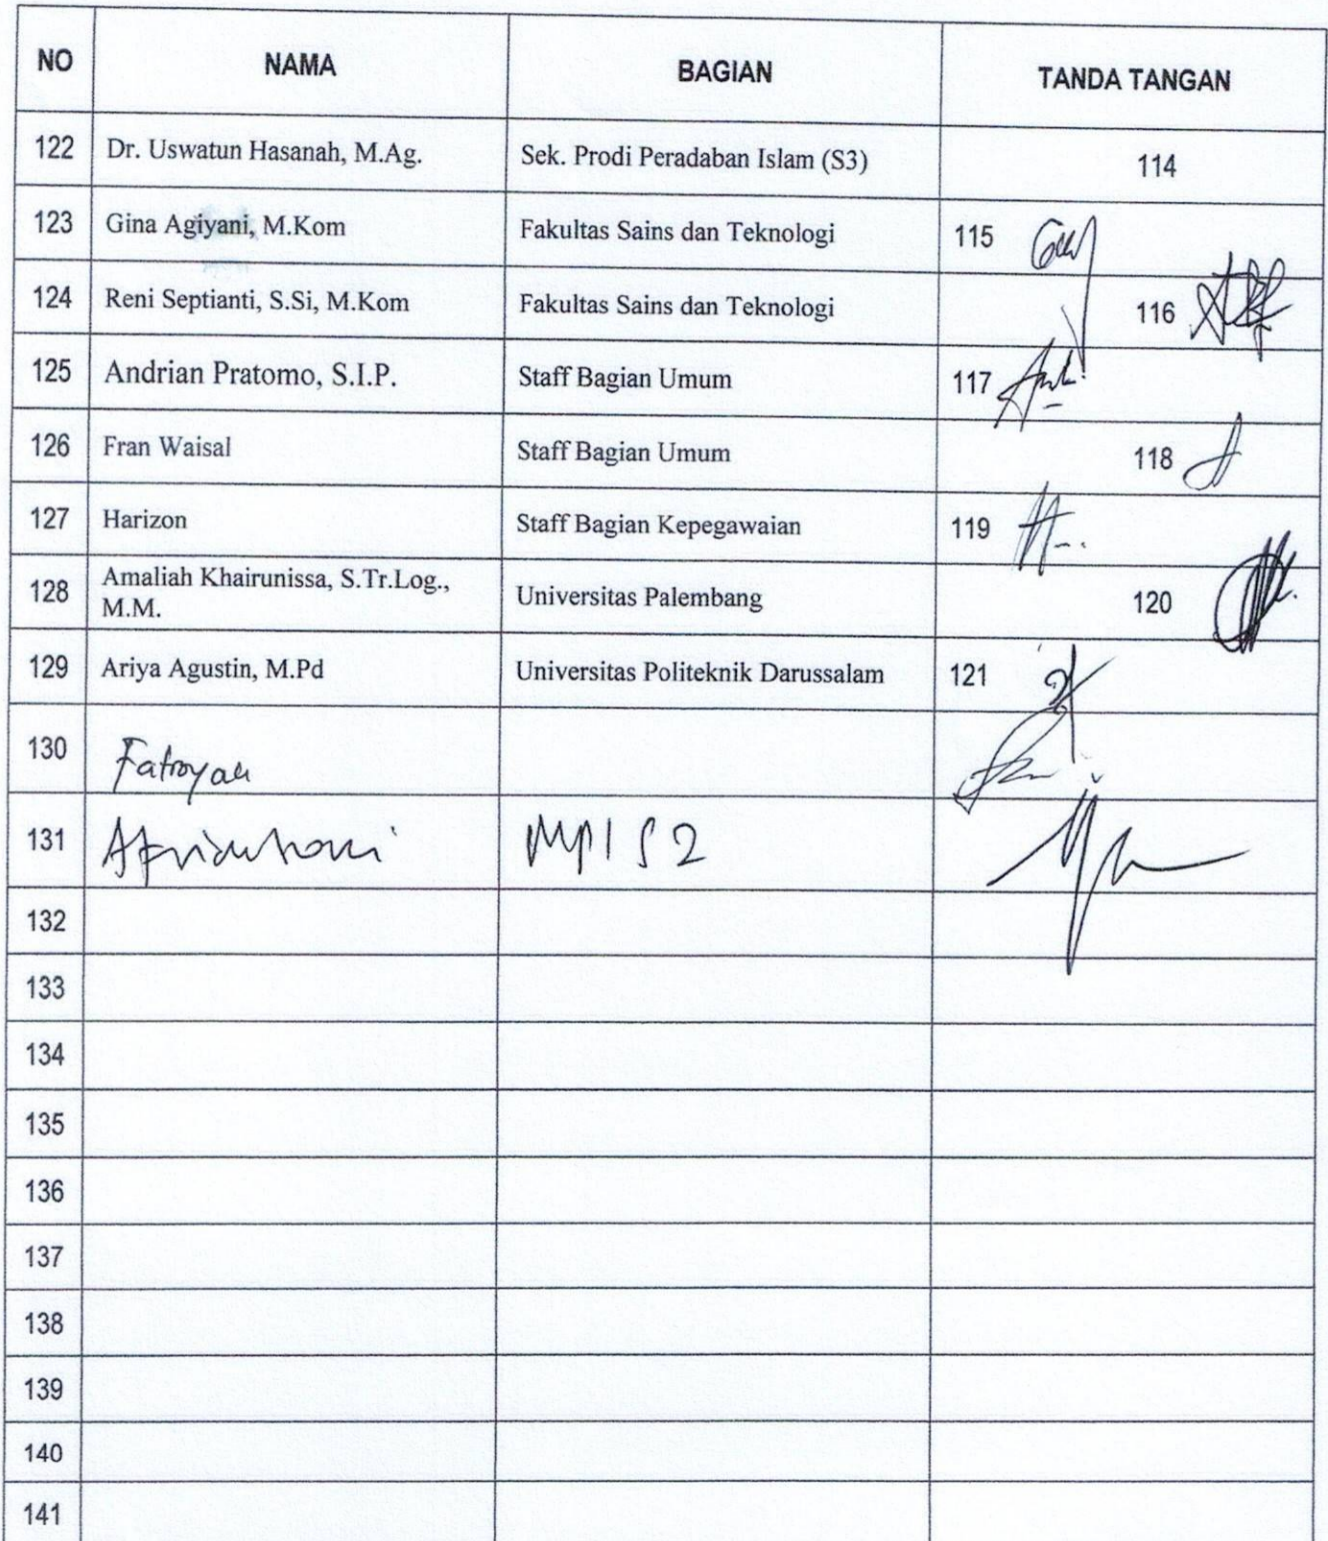 NO NAMA BAGIAN TANDA TANGAN
122 Dr. Uswatun Hasanah, M.Ag. Sek. Prodi Peradaban Islam (S3) 114
123 Gina Agiyani, M.Kom Fakultas Sains dan Teknologi 115
124 Reni Septianti, S.Si, M.Kom Fakultas Sains dan Teknologi 116
125 Andrian Pratomo, S.I.P. Staff Bagian Umum 117
126 Fran Waisal Staff Bagian Umum 118
127 Harizon Staff Bagian Kepegawaian 119
128 Amaliah Khairunissa, S.Tr.Log.,
M.M. Universitas Palembang 120
129 Ariya Agustin, M.Pd Universitas Politeknik Darussalam 121
130 Fatroyah
131 MPI S2
132
133
134
135
136
137
138
139
140
141